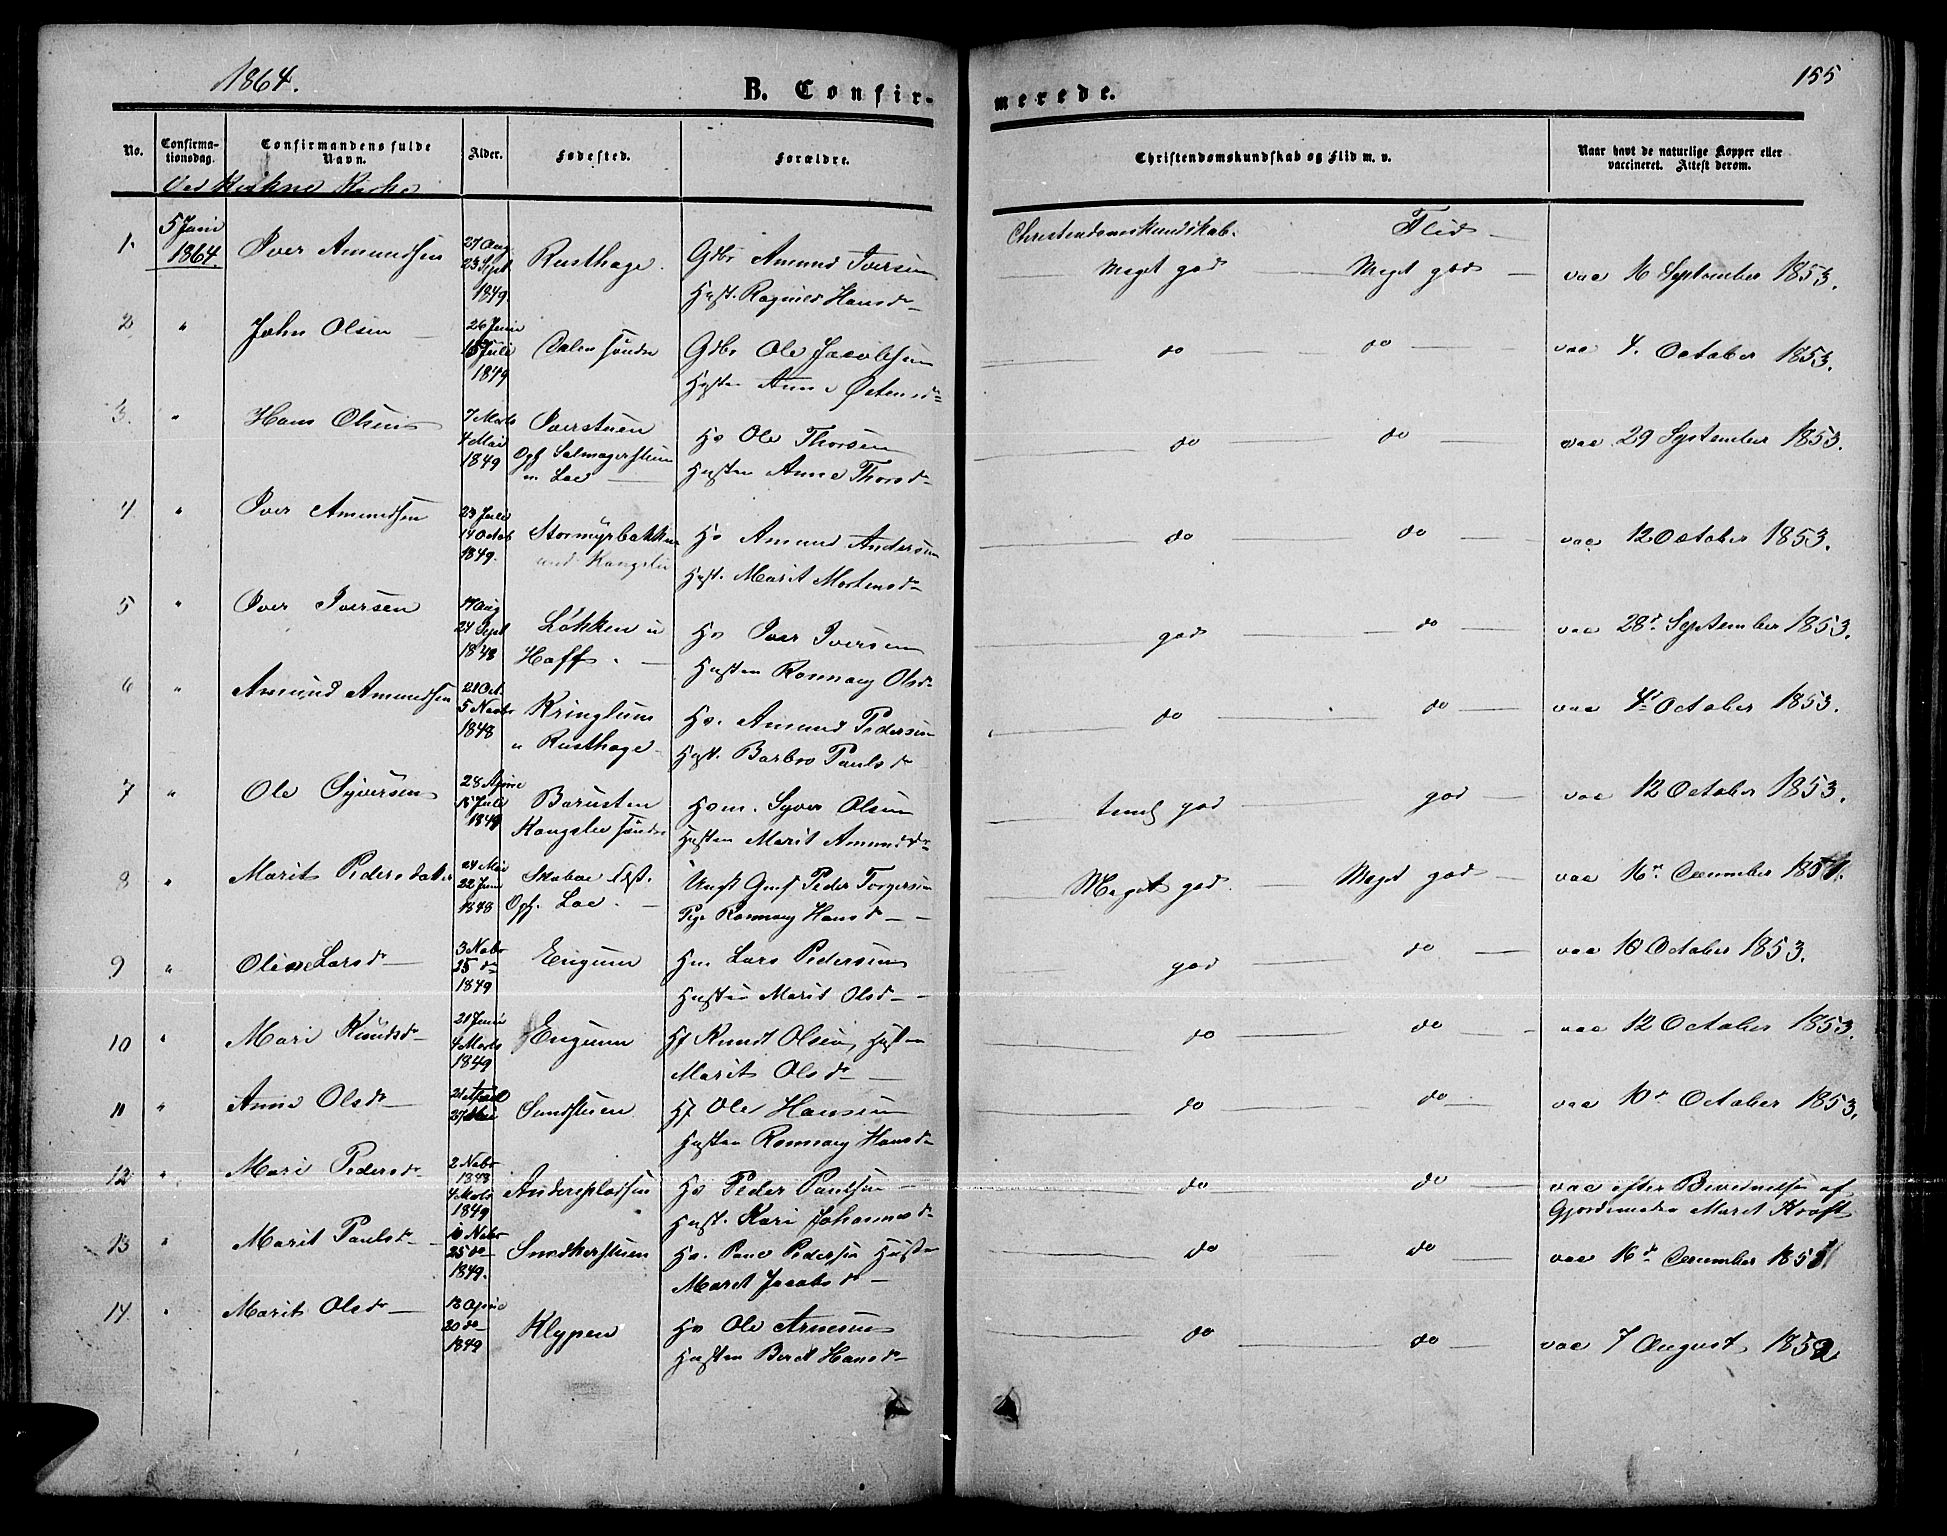 1864.
B. Confir-
merede.
155
No.
Confirma-
tionsdag.
Confirmandens fulde
Navn.
Alder.
Fødested.
Forældre.
Christendomskundskab og Flid m. v.
Naar havt de naturlige Kopper eller
vaccineret. Attest derom.
Ved Kirke
Christendomskundskab. Flid
1. 5 Juni 1864. Iver Amundsen 27 Aug 23 Sept 1849. Rusthage. Gdbr Amund Iversen Hust. Ragnild Hansd Meget god Meget god vac 16 September 1853.
2 " John Olsen 26 Juni 15 Juli 1849 Dalen søndre Gdbr Ole Jacobsen Hustru Anne Østensd do do vac 4. October 1853.
3. " Hans Olsen 7 Marts 4 Mai 1849 Iverstuen Opf. Salmagerstuen u. Loe Hv Ole Thorsen Hustru Anne Thorsd do do vac 29 September 1853.
4 " Iver Amundsen 23 Juli 14 Octob 1849. Stormyrbakken Hv Amund Andersen Hust. Marit Mortensd do do vac 12 October 1853.
5 " Iver Iversen 17 Aug 24 Sept 1848 Løkken u Hoff. Hv Iver Iversen Hustru Ronnaug Olsd god do vac 28d September 1853.
6 " Amund Amundsen 21 Oct. 5 Novbr 1848 Kringlum u Rusthage Hv. Amund Pedersen Hust. Barbro Paulsd do do vac 4d October 1853.
7 " Ole Syversen 28 15 Juli 1849 Kongslie søndre Hvm. Syver Olsen Hustru Marit Amundsd god god vac 12 October 1853.
8 " Marit Pedersdatter 24 Mai 22 Juni 1848 Opf. Loe. Peder Torgersen Pige Ronnaug Hansd Meget god Meget god vac 16d December 1851.
9 " Oline Larsd 3 Nobr 25 do 1849 Engum Lars Pedersen Hustru Marit Olsd god do vac 10 October 1853.
10 " Mari Knudsd 21 Juni 4 Marts 1849 Engum Knudt Olsen, Hustru Marit Olsd do do vac 12 October 1853.
11 " Anne Olsd Sundstuen Ole Hansen Hustru Ronnaug Hansd do do vac 10d October 1853.
12 " Mari Pedersd 2 Nobr 1848 4 Marts 1849 Anderspladsen Hv Peder Paulsen Hust. Kari Johannesd do do vac efter Bevidnelse af Gjordemodre Marit Kraft
13 " Marit Paulsd 10 Nobr 25 do 1849. Hv. Pedersen Hustru Marit Jacobsd do do vac 16d December 1851
14. " Marit Olsd 13 20 do 1849 Klypen Hv Ole Arnesen Hustru Berit Hansd do do vac 7 August 1852